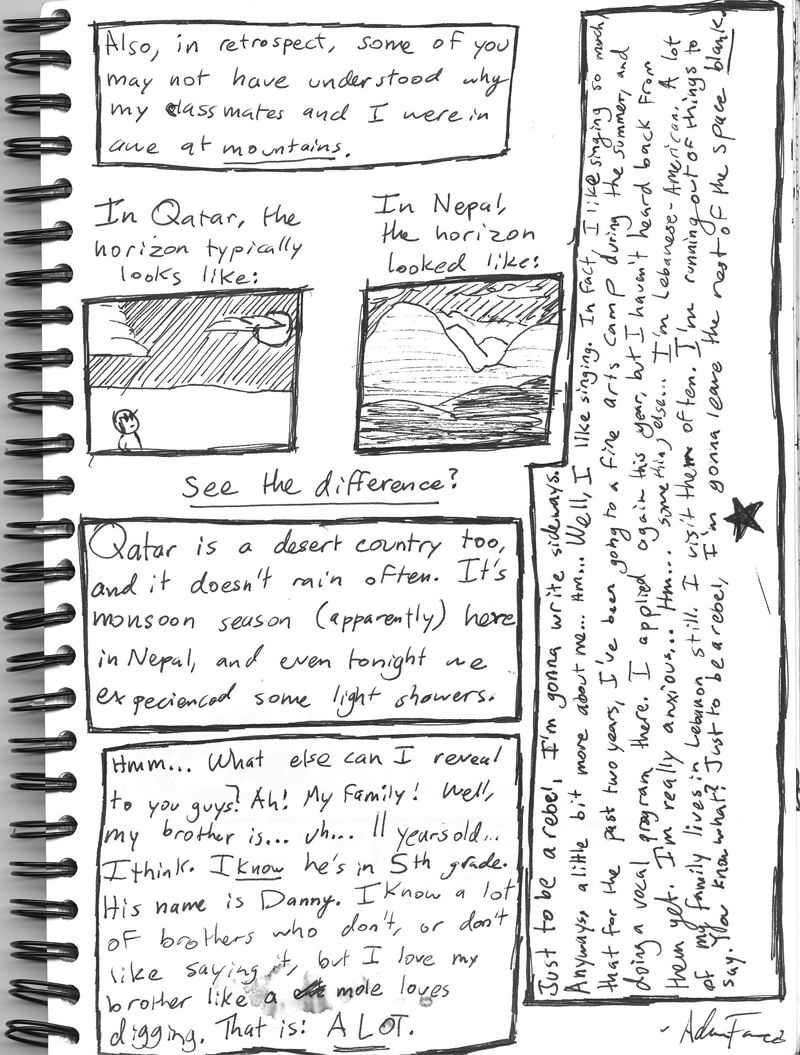 Also, in retrospect, some of you
may not have understood why
my classmates and I were in
awe at mountains.
In Qatar, the
horizon typically
looks like:
In Nepal,
the horizon
looked like:
See the difference?
Qatar is a desert country too,
and it doesn't rain often. It's
monsoon season (apparently) here
in Nepal, and even tonight we
expecienced some light showers.
Hmm... What else can I reveal
to you guys? Ah! My Family! Well,
my brother is... uh... 11 years old...
I think. I know he's in 5th grade.
His name is Danny. I know a lot
of brothers who don't, or don't
like saying it, but I love my
brother like a mole loves
digging. That is: A LOT.
Just to be a rebel, I'm gonna write sideways.
Anyways, a little bit more about me... Hm... Well, I like singing. In fact, I like singing so much,
that for the past two years, I've been going to a fine arts camp during the summer, and
doing a vocal program there. I applied again this year, but I haven't heard back from
them yet. I'm really anxious... Hm... something else... I'm Lebanese-American. A lot
of my family lives in Lebanon still. I visit them often. I'm running out of things to
say. You know what? Just to be a rebel, I'm gonna leave the rest of the space blank.
- Adam